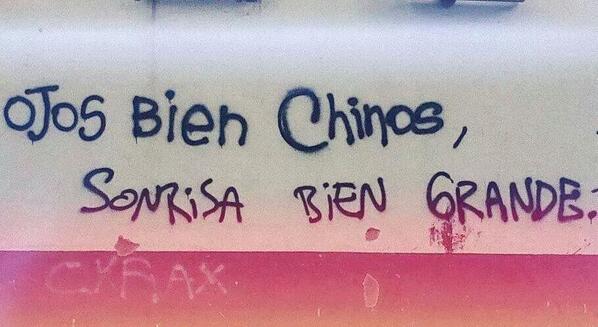 OJOS Bien Chinos,
SONRISA BIEN GRANDE.